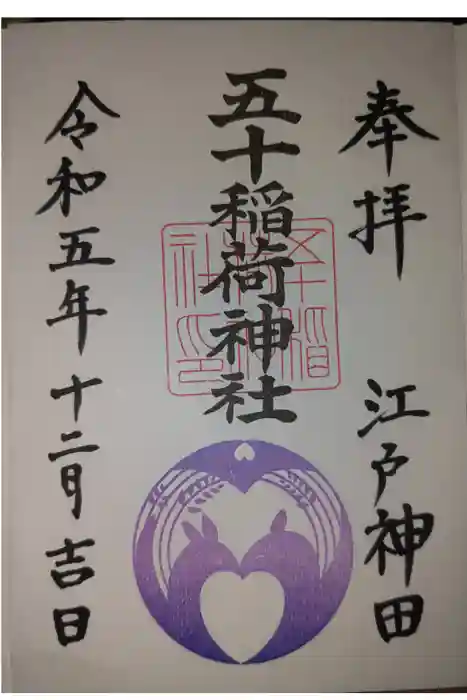 奉拝
江戸神田
五十稲荷神社
令和五年十二月吉日